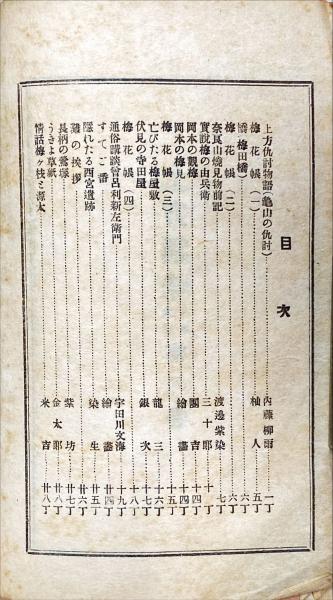 目次
上方仇討物語（亀山の仇討） 內藤柳雨 一丁
梅花帳（一） 柚人 五丁
橋梅田橋 六丁
梅花帳（二） 六丁
奈良山燒見物前記 渡邊紫染 七丁
實說梅の由兵衞 三十郞 十丁
岡本の觀梅 團吉 十四丁
岡本の梅見 繪畵 十四丁
梅花帳（三） 十五丁
亡びたる梅屋敷 龍三 十六丁
伏見の寺田屋 銀次 十七丁
梅花帳（四） 十八丁
通俗講談曾呂利新左衞門 宇田川文海 十九丁
すてご番 繪畵 廿四丁
隱れたる西宮遺跡 染生 廿五丁
雛の挨拶 廿六丁
長柄の鶯塚 紫坊 廿七丁
うきよ草紙 金太郞 廿八丁
情話梅ヶ枝と源太 米吉 廿八丁